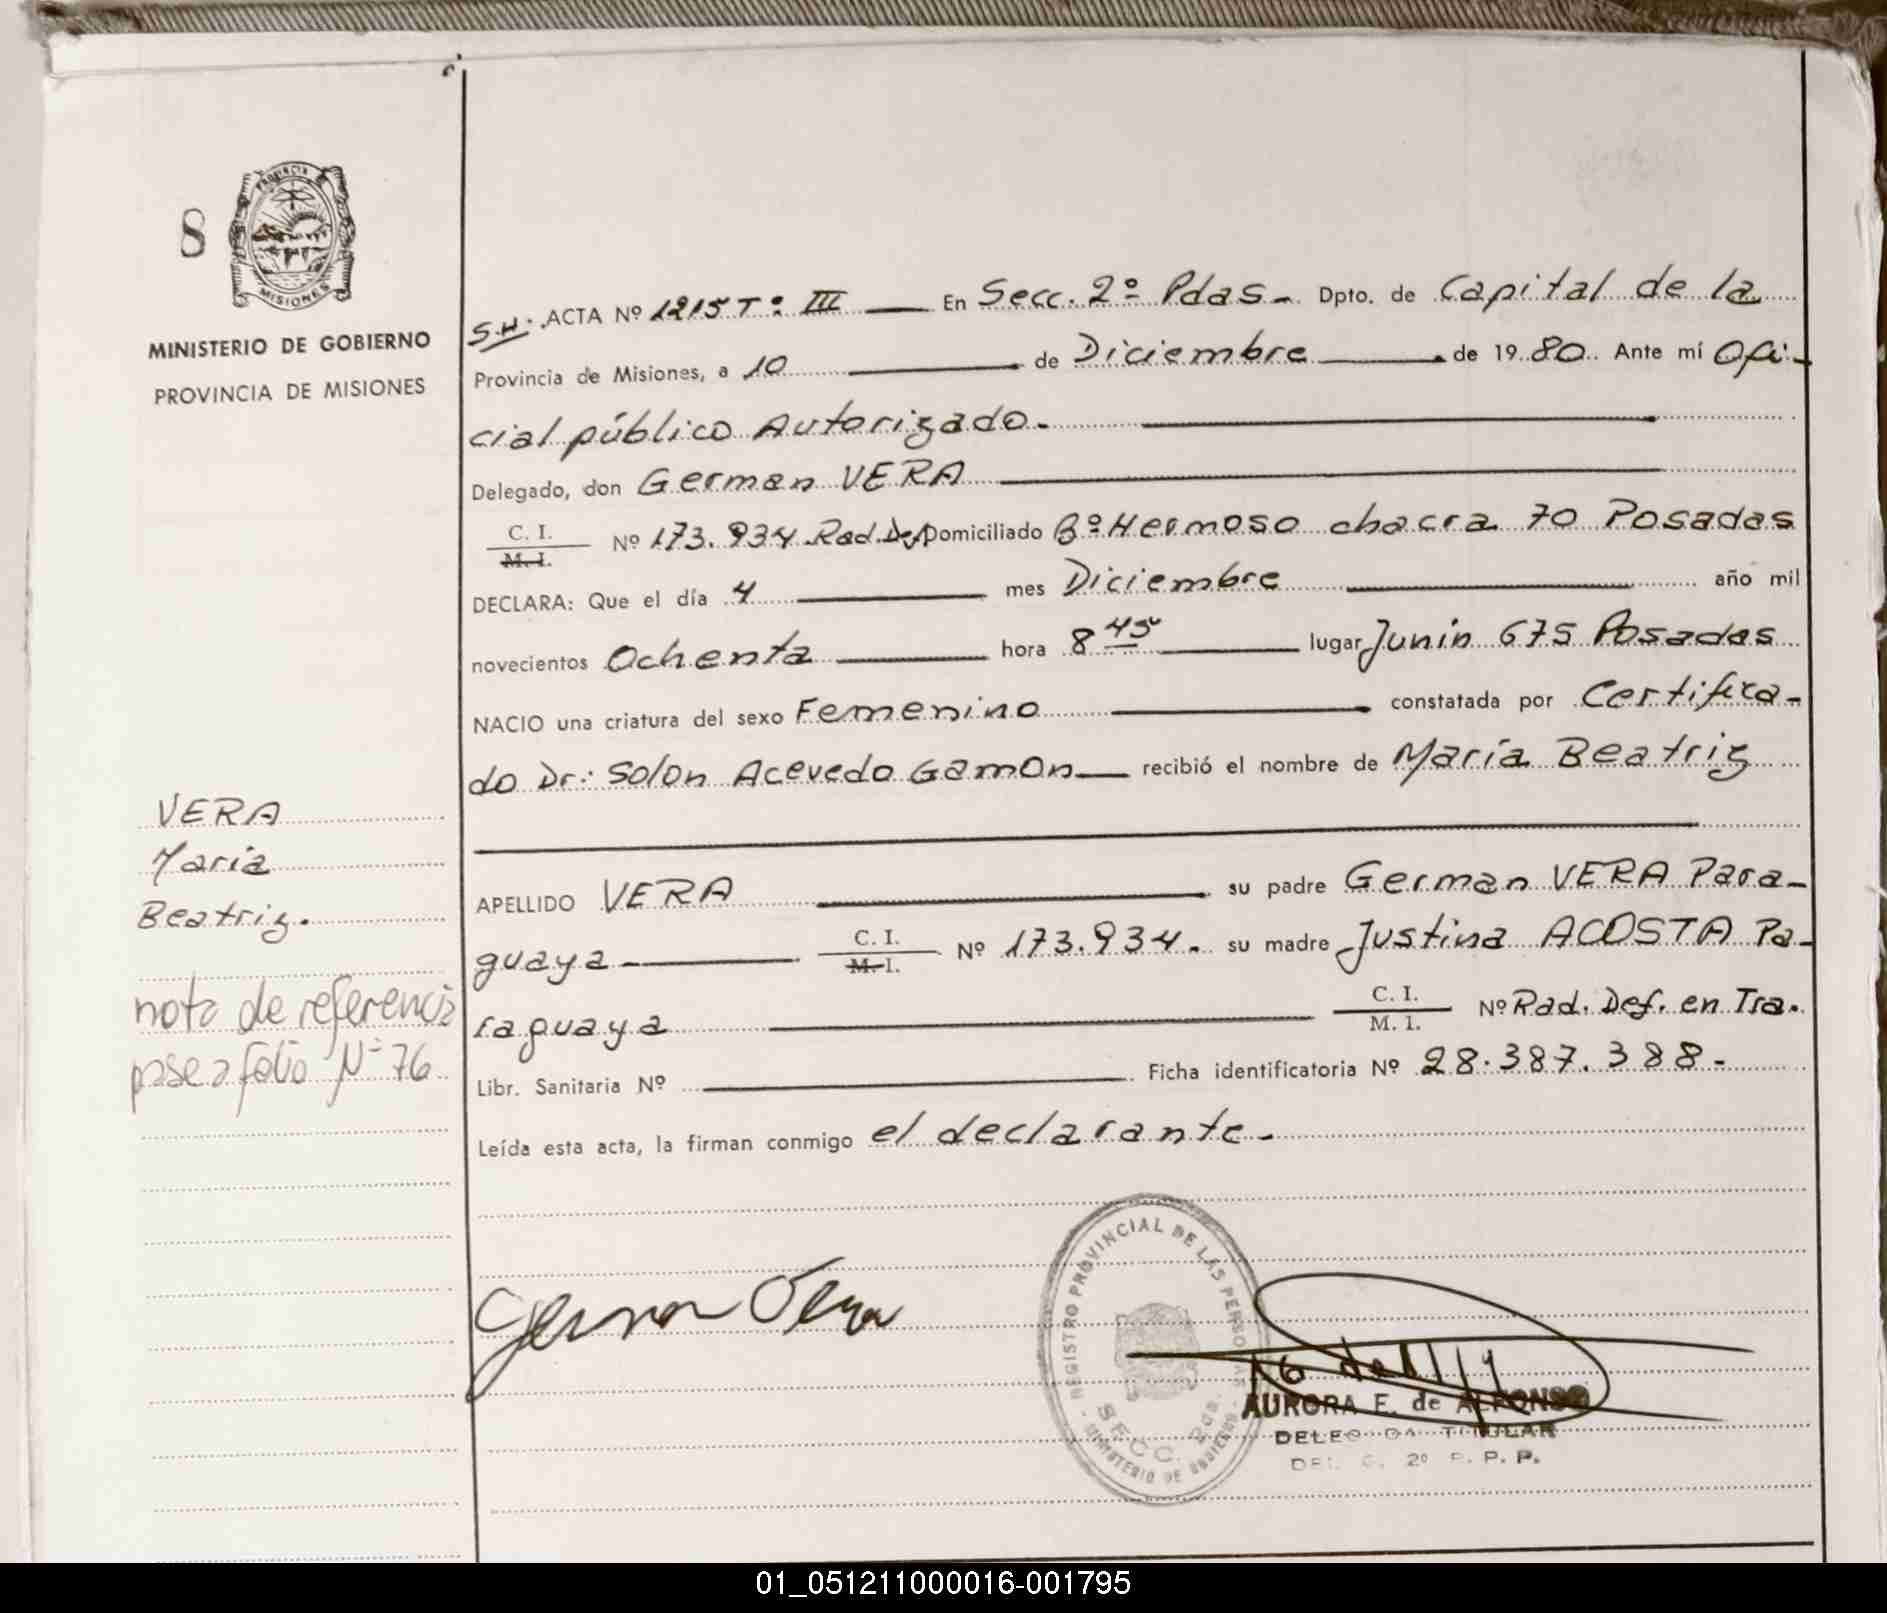 8
PROVINCIA
MISIONES
MINISTERIO DE GOBIERNO
PROVINCIA DE MISIONES
S.H. ACTA Nº 1215 Tº III En Secc. 2º Pdas- Dpto. de Capital de la
Provincia de Misiones, a 10 de Diciembre de 1980. Ante mí Ofi-
cial público Autorizado.
Delegado, don German VERA
C. I.
M. I. Nº 173.934 Rad. Def Domiciliado Bº Hermoso chacra 70 Posadas
DECLARA: Que el día 4 mes Diciembre año mil
novecientos Ochenta hora 8 45 lugar Junin 675 Posadas
NACIO una criatura del sexo Femenino constatada por Certifica-
do Dr: Solon Acevedo Gamon recibió el nombre de María Beatriz
APELLIDO VERA su padre German VERA Para-
guaya C. I. M. I. Nº 173.934. su madre Justina ACOSTA Pa-
raguaya C. I. M. I. Nº Rad. Def. en Tra.
Libr. Sanitaria Nº Ficha identificatoria Nº 28.387.388-
Leída esta acta, la firman conmigo el declarante-
VERA
María
Beatriz.
nota de referencia
pase a folio Nº 76
German Vera
REGISTRO PROVINCIAL DE LAS PERSONAS
SECC. 2 Pdas.
MINISTERIO DE GOBIERNO
AURORA E. de ALFONSO
DELEGADA TITULAR
DEL 2º P. P.
01_051211000016-001795